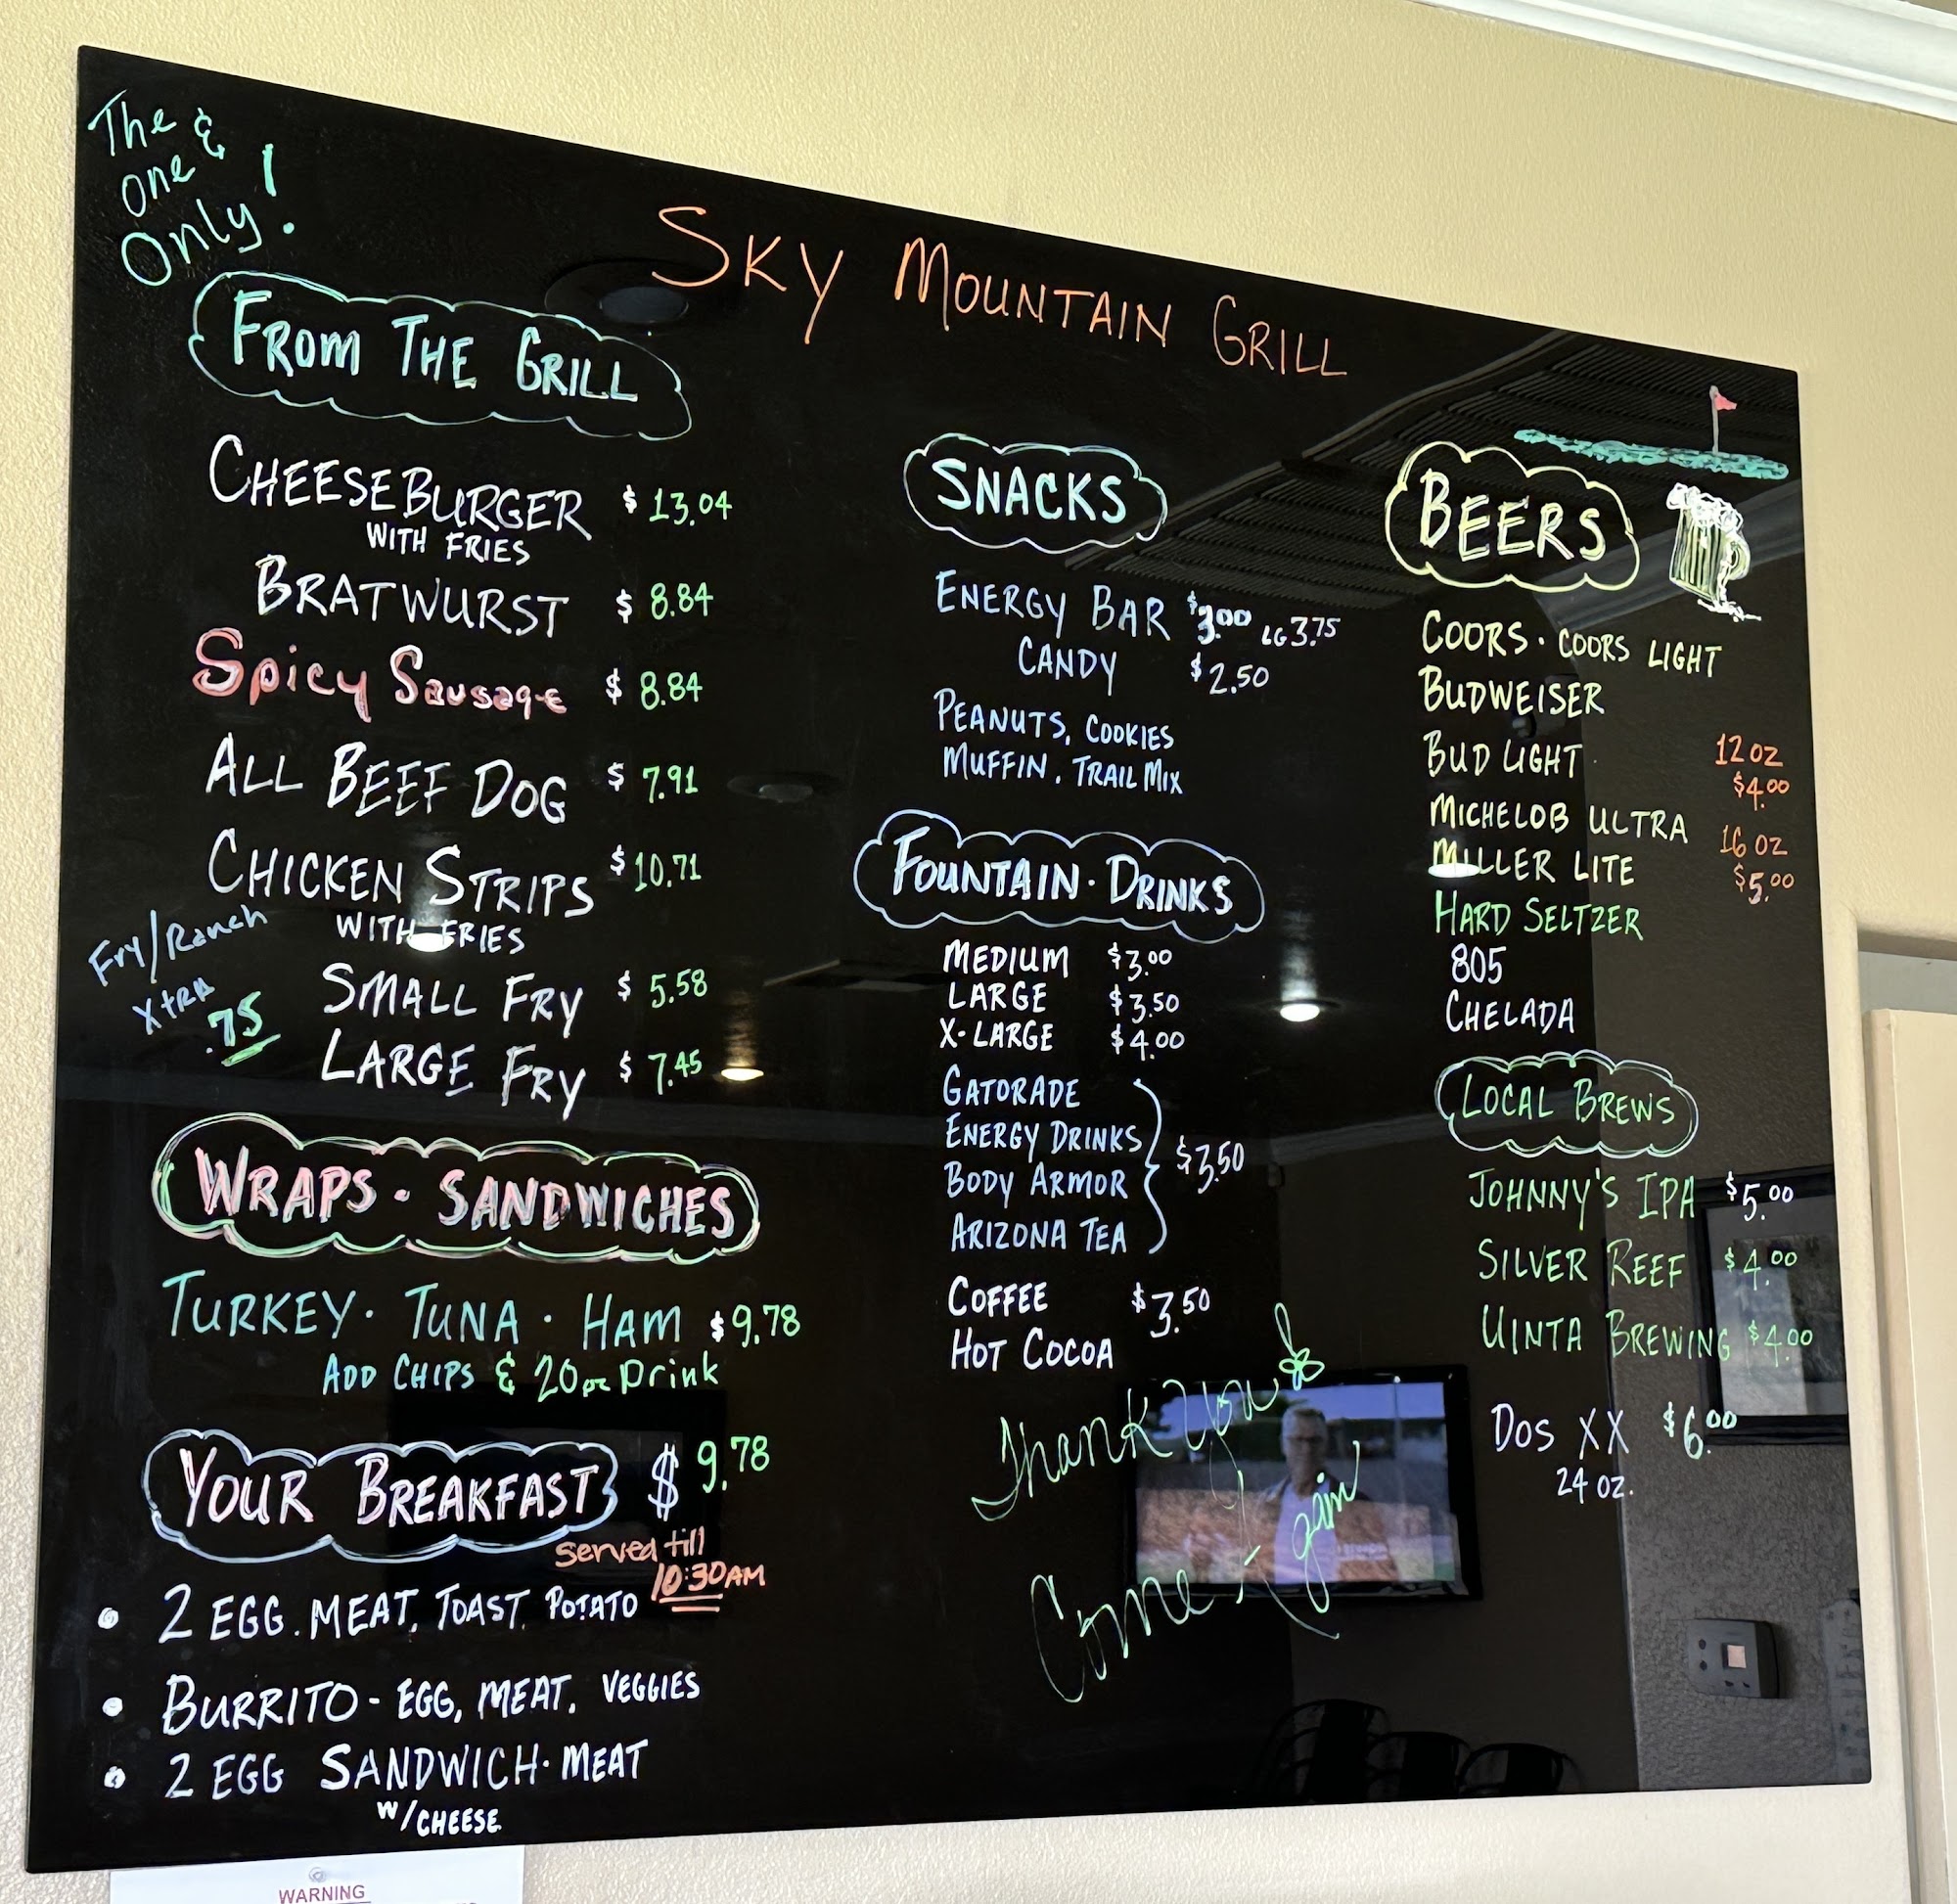 The &
one
Only!
SKY MOUNTAIN GRILL
FROM THE GRILL
CHEESEBURGER $13.04
WITH FRIES
BRATWURST $8.84
Spicy Sausage $8.84
ALL BEEF DOG $7.91
CHICKEN STRIPS $10.71
WITH FRIES
Fry/Ranch
XtRA
.75
SMALL FRY $5.58
LARGE FRY $7.45
WRAPS · SANDWICHES
TURKEY · TUNA · HAM $9.78
ADD CHIPS & 20oz Drink
YOUR BREAKFAST $9.78
Served till
10:30AM
• 2 EGG. MEAT, TOAST, POTATO
• BURRITO - EGG, MEAT, VEGGIES
• 2 EGG SANDWICH · MEAT
W/CHEESE
SNACKS
ENERGY BAR $3.00 LG 3.75
CANDY $2.50
PEANUTS, COOKIES
MUFFIN, TRAIL MIX
FOUNTAIN · DRINKS
MEDIUM $3.00
LARGE $3.50
X-LARGE $4.00
GATORADE
ENERGY DRINKS
BODY ARMOR
ARIZONA TEA
$3.50
COFFEE $3.50
HOT COCOA
Thank You
Come Again
BEERS
COORS · COORS LIGHT
BUDWEISER
BUD LIGHT
MICHELOB ULTRA
MILLER LITE
HARD SELTZER
805
CHELADA
12 OZ
$4.00
16 OZ
$5.00
LOCAL BREWS
JOHNNY'S IPA $5.00
SILVER REEF $4.00
UINTA BREWING $4.00
DOS XX $6.00
24 OZ.
WARNING